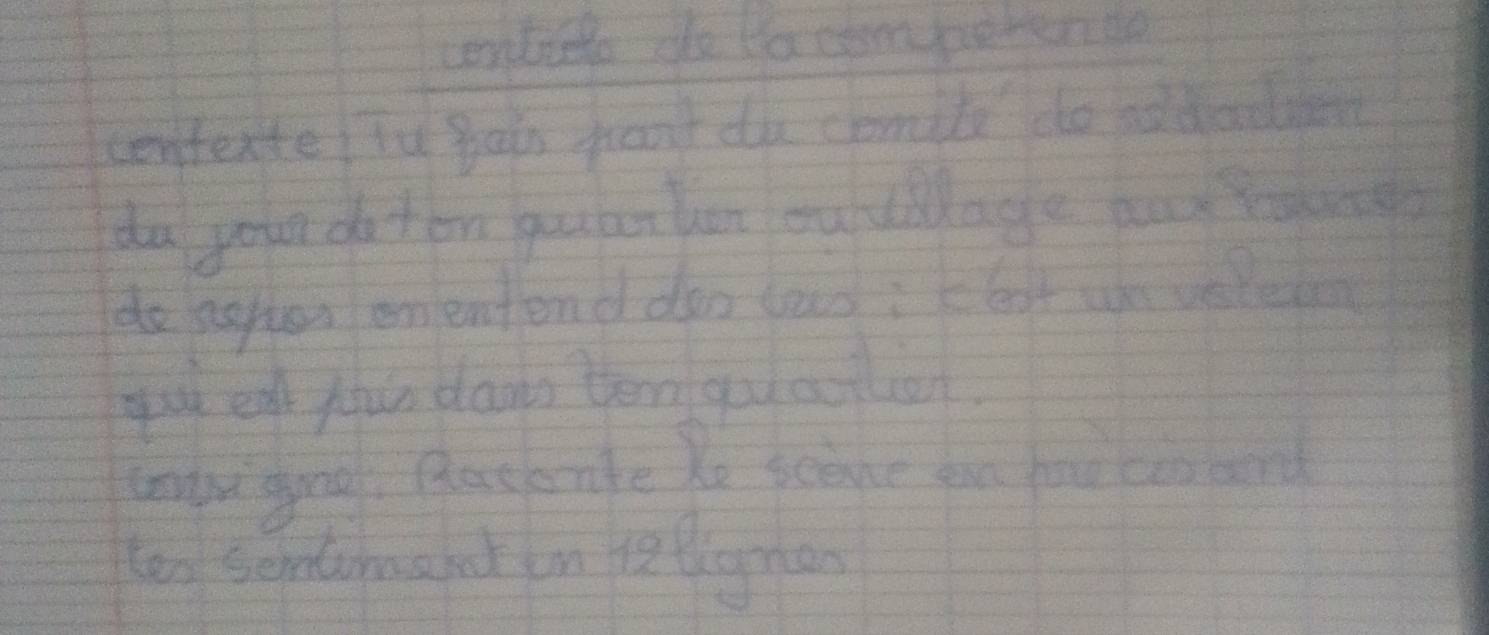 controle de la competence
contexte: Tu fais part du comite de
du jour de ton quartier ou village aux heures
de entend des cris: c'est un voleur
qui est pris dans ton quartier.
consigne. Raconte la scène en precisant
tes sentiment en 12 lignes